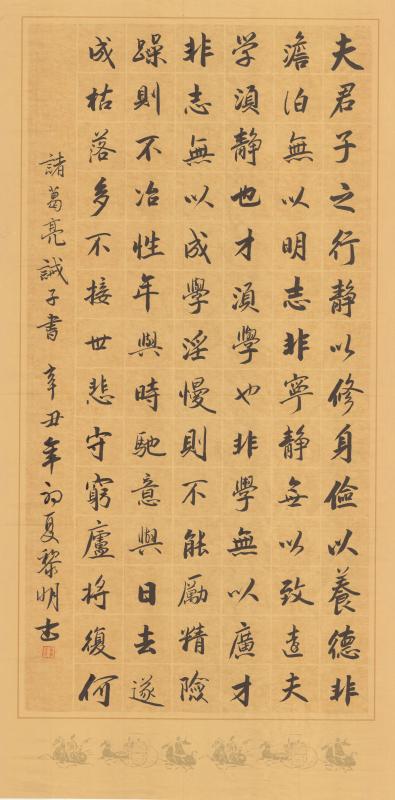 夫君子之行静以修身俭以養德非
澹泊無以明志非寧静無以致遠夫
学須静也才須學也非學無以廣才
非志無以成學淫慢則不能勵精險
躁則不冶性年與時馳意與日去遂
成枯落多不接世悲守窮廬將復何
諸葛亮誡子書 辛丑年初夏黎明书